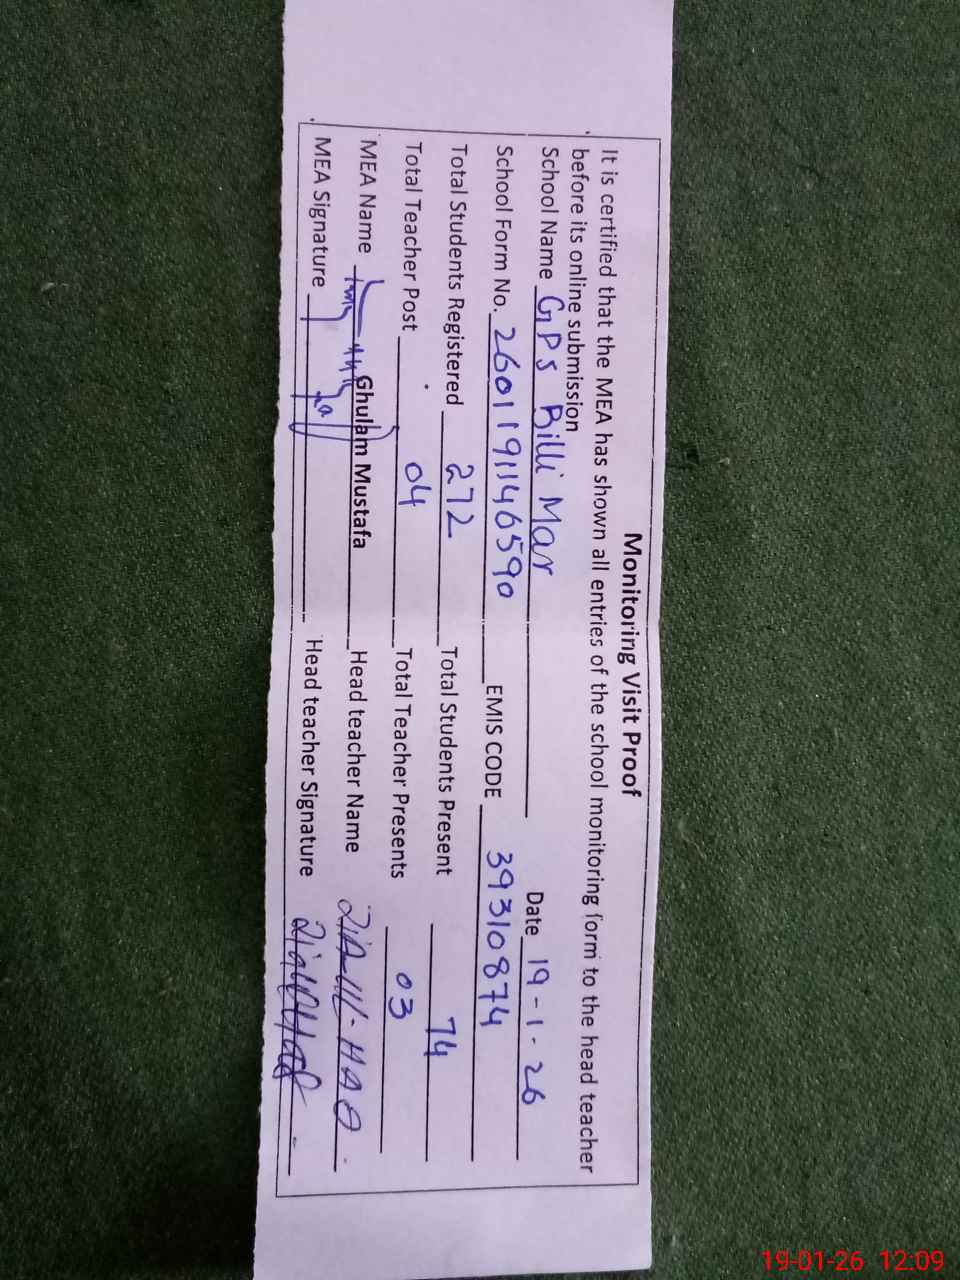 Monitoring Visit Proof
It is certified that the MEA has shown all entries of the school monitoring form to the head teacher
before its online submission
School Name GPS Billi Mar Date 19-1-26
School Form No. 260119114 6590 EMIS CODE 39310874
Total Students Registered 272 Total Students Present 74
Total Teacher Post 04 Total Teacher Presents 03
MEA Name Ghulam Mustafa Head teacher Name ZIA-UL-HAQ.
MEA Signature Head teacher Signature
19-01-26 12:09